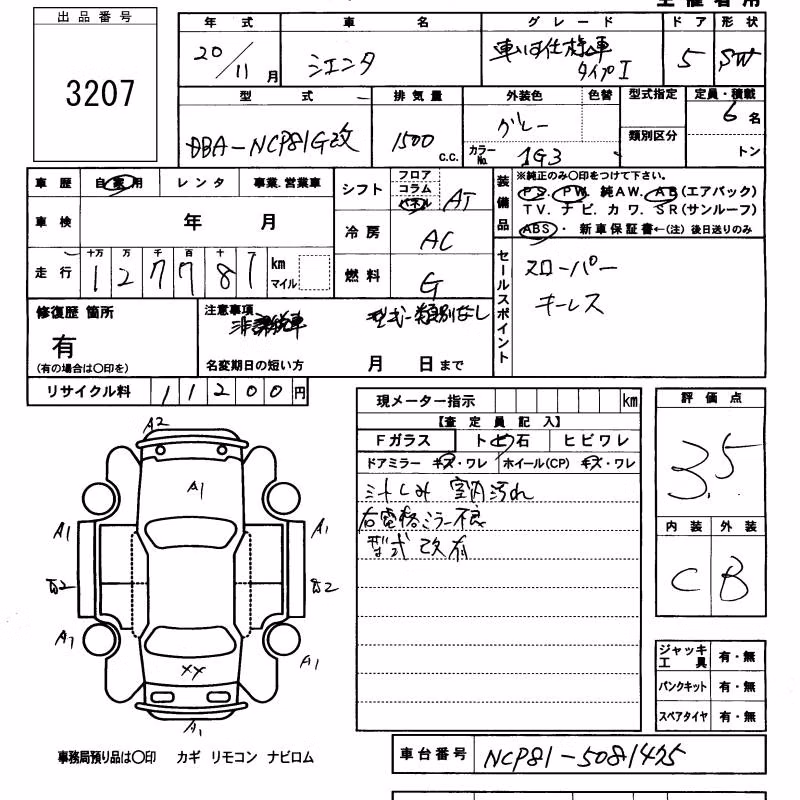 主催者用
出品番号
3207
年式
20/11月
車名
シエンタ
グレード
車いす仕様車
タイプI
ドア
5
形状
SW
型式
DBA-NCP81G改
排気量
1500 c.c.
外装色
グレー
色替
カラーNo.
1G3
型式指定
類別区分
定員・積載
6名
トン
車歴
自家用 レンタ 事業.営業車
車検
年 月
走行
十万 万 千 百 十
127781
km
マイル
シフト
フロア
コラム
パネル
AT
冷房
AC
燃料
G
装備品
※純正のみ〇印をつけて下さい。
PS. PW. 純AW. AB(エアバック)
TV. ナビ. カワ. SR(サンルーフ)
ABS・ 新車保証書←(注) 後日送りのみ
セールスポイント
スローパー
キーレス
修復歴 箇所
有
(有の場合は〇印を)
注意事項
非課税車
型式-類別なし
名変期日の短い方 月 日まで
リサイクル料
11200円
現メーター指示
km
【査定員記入】
Fガラス トビ石 ヒビワレ
ドアミラー キズ・ワレ ホイール(CP) キズ・ワレ
シートしみ 室内汚れ
右電格ミラー不良
型式 改 有
評価点
3.5
内装 外装
C B
A2
A1
A1
A1
A1
A1
XX
A1
ジャッキ工具 有・無
パンクキット 有・無
スペアタイヤ 有・無
事務局預り品は〇印 カギ リモコン ナビロム
車台番号
NCP81-5081475